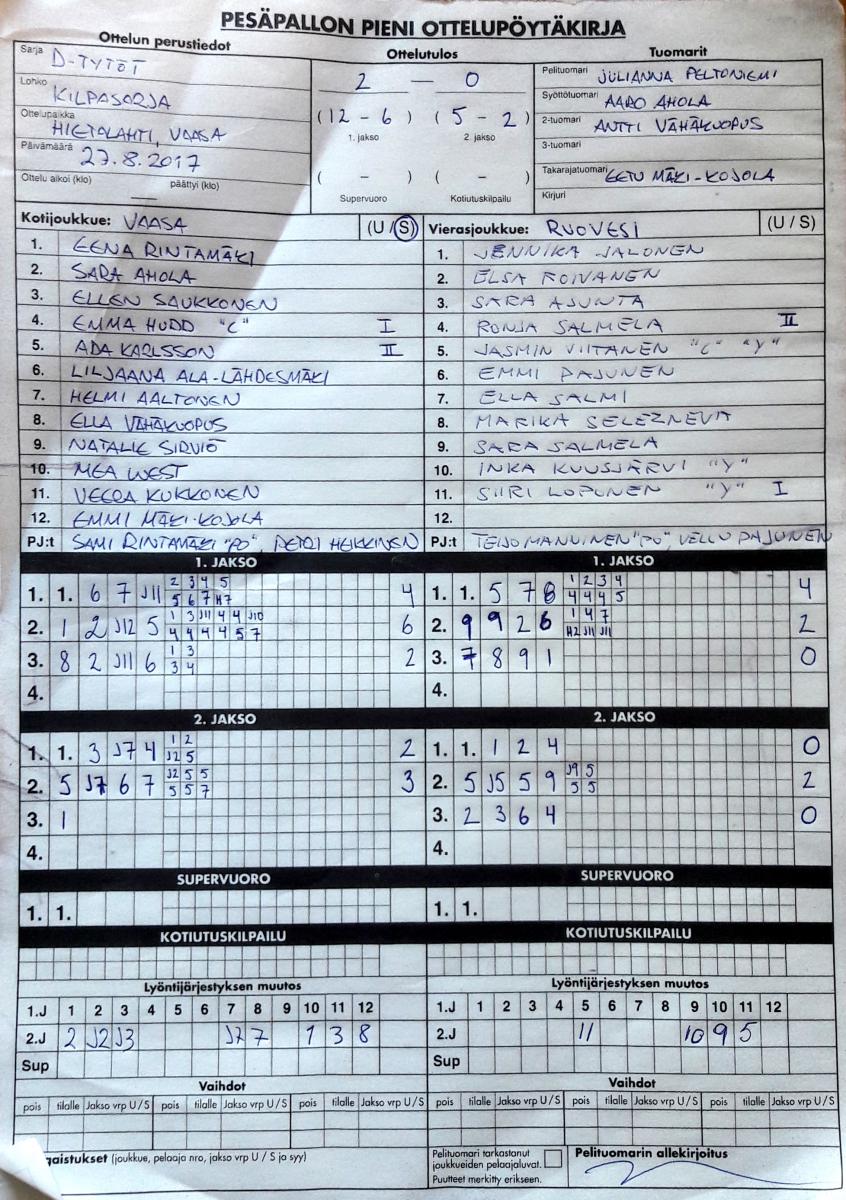 PESÄPALLON PIENI OTTELUPÖYTÄKIRJA
Ottelun perustiedot
Sarja D-TYTÖT
Lohko KILPASARJA
Ottelupaikka HIETALAHTI, VAASA
Päivämäärä 27.8.2017
Ottelu alkoi (klo) päättyi (klo)
Ottelutulos
2 — 0
(12 - 6) (5 - 2)
1. jakso 2. jakso
( - ) ( - )
Supervuoro Kotiutuskilpailu
Tuomarit
Pelituomari JULIANNA PELTONIEMI
Syöttötuomari AARO AHOLA
2-tuomari ANTTI VÄHÄKUOPUS
3-tuomari
Takarajatuomari EETU MÄKI-KOJOLA
Kirjuri
Kotijoukkue: VAASA (U/S)
1. EENA RINTAMÄKI
2. SARA AHOLA
3. ELLEN SAUKKONEN
4. EMMA HUDD "C" I
5. ADA KARLSSON II
6. LILJAANA ALA-LÄHDESMÄKI
7. HELMI AALTONEN
8. ELLA VÄHÄKUOPUS
9. NATALIE SIRVIÖ
10. MEA WEST
11. VEERA KUKKONEN
12. EMMI MÄKI-KOJOLA
PJ:t SAMI RINTAMÄKI "PO", PETRI HEIKKINEN
Vierasjoukkue: RUOVESI (U / S)
1. JENNIKA JALONEN
2. ELSA ROIVANEN
3. SARA ASUNTA
4. RONJA SALMELA II
5. JASMIN VIITANEN "C" "Y"
6. EMMI PAJUNEN
7. ELLA SALMI
8. MARIKA SELEZNEVA
9. SARA SALMELA
10. INKA KUUSJÄRVI "Y"
11. SIIRI LOPONEN "Y" I
12.
PJ:t TEIJO MANNINEN "PO", VELLU PAJUNEN
1. JAKSO
1. 1. 6 7 J11 2 3 4 5 4
5 6 7 H7
2. 1 2 J12 5 1 3 J11 4 4 J10 6
4 4 4 4 5 7
3. 8 2 J11 6 1 3 2
3 4
4.
1. JAKSO
1. 1. 5 7 8 1 2 3 4 4
4 4 4 5
2. 9 9 2 6 1 4 7 2
H2 J11 J11
3. 7 8 9 1 0
4.
2. JAKSO
1. 1. 3 J7 4 1 2 2
J2 5
2. 5 J7 6 7 J2 5 5 3
5 5 7
3. 1
4.
2. JAKSO
1. 1. 1 2 4 0
2. 5 J5 5 9 J9 5 2
5 5
3. 2 3 6 4 0
4.
SUPERVUORO
1. 1.
SUPERVUORO
1. 1.
KOTIUTUSKILPAILU
KOTIUTUSKILPAILU
Lyöntijärjestyksen muutos
1.J 1 2 3 4 5 6 7 8 9 10 11 12
2.J 2 J2 J3 J7 7 1 3 8
Sup
Lyöntijärjestyksen muutos
1.J 1 2 3 4 5 6 7 8 9 10 11 12
2.J 11 10 9 5
Sup
Vaihdot
pois tilalle Jakso vrp U / S pois tilalle Jakso vrp U / S pois tilalle Jakso vrp U / S
Vaihdot
pois tilalle Jakso vrp U / S pois tilalle Jakso vrp U / S pois tilalle Jakso vrp U / S
gaistukset (joukkue, pelaaja nro, jakso vrp U / S ja syy)
Pelituomari tarkastanut
joukkueiden pelaajaluvat.
Puutteet merkitty erikseen.
Pelituomarin allekirjoitus